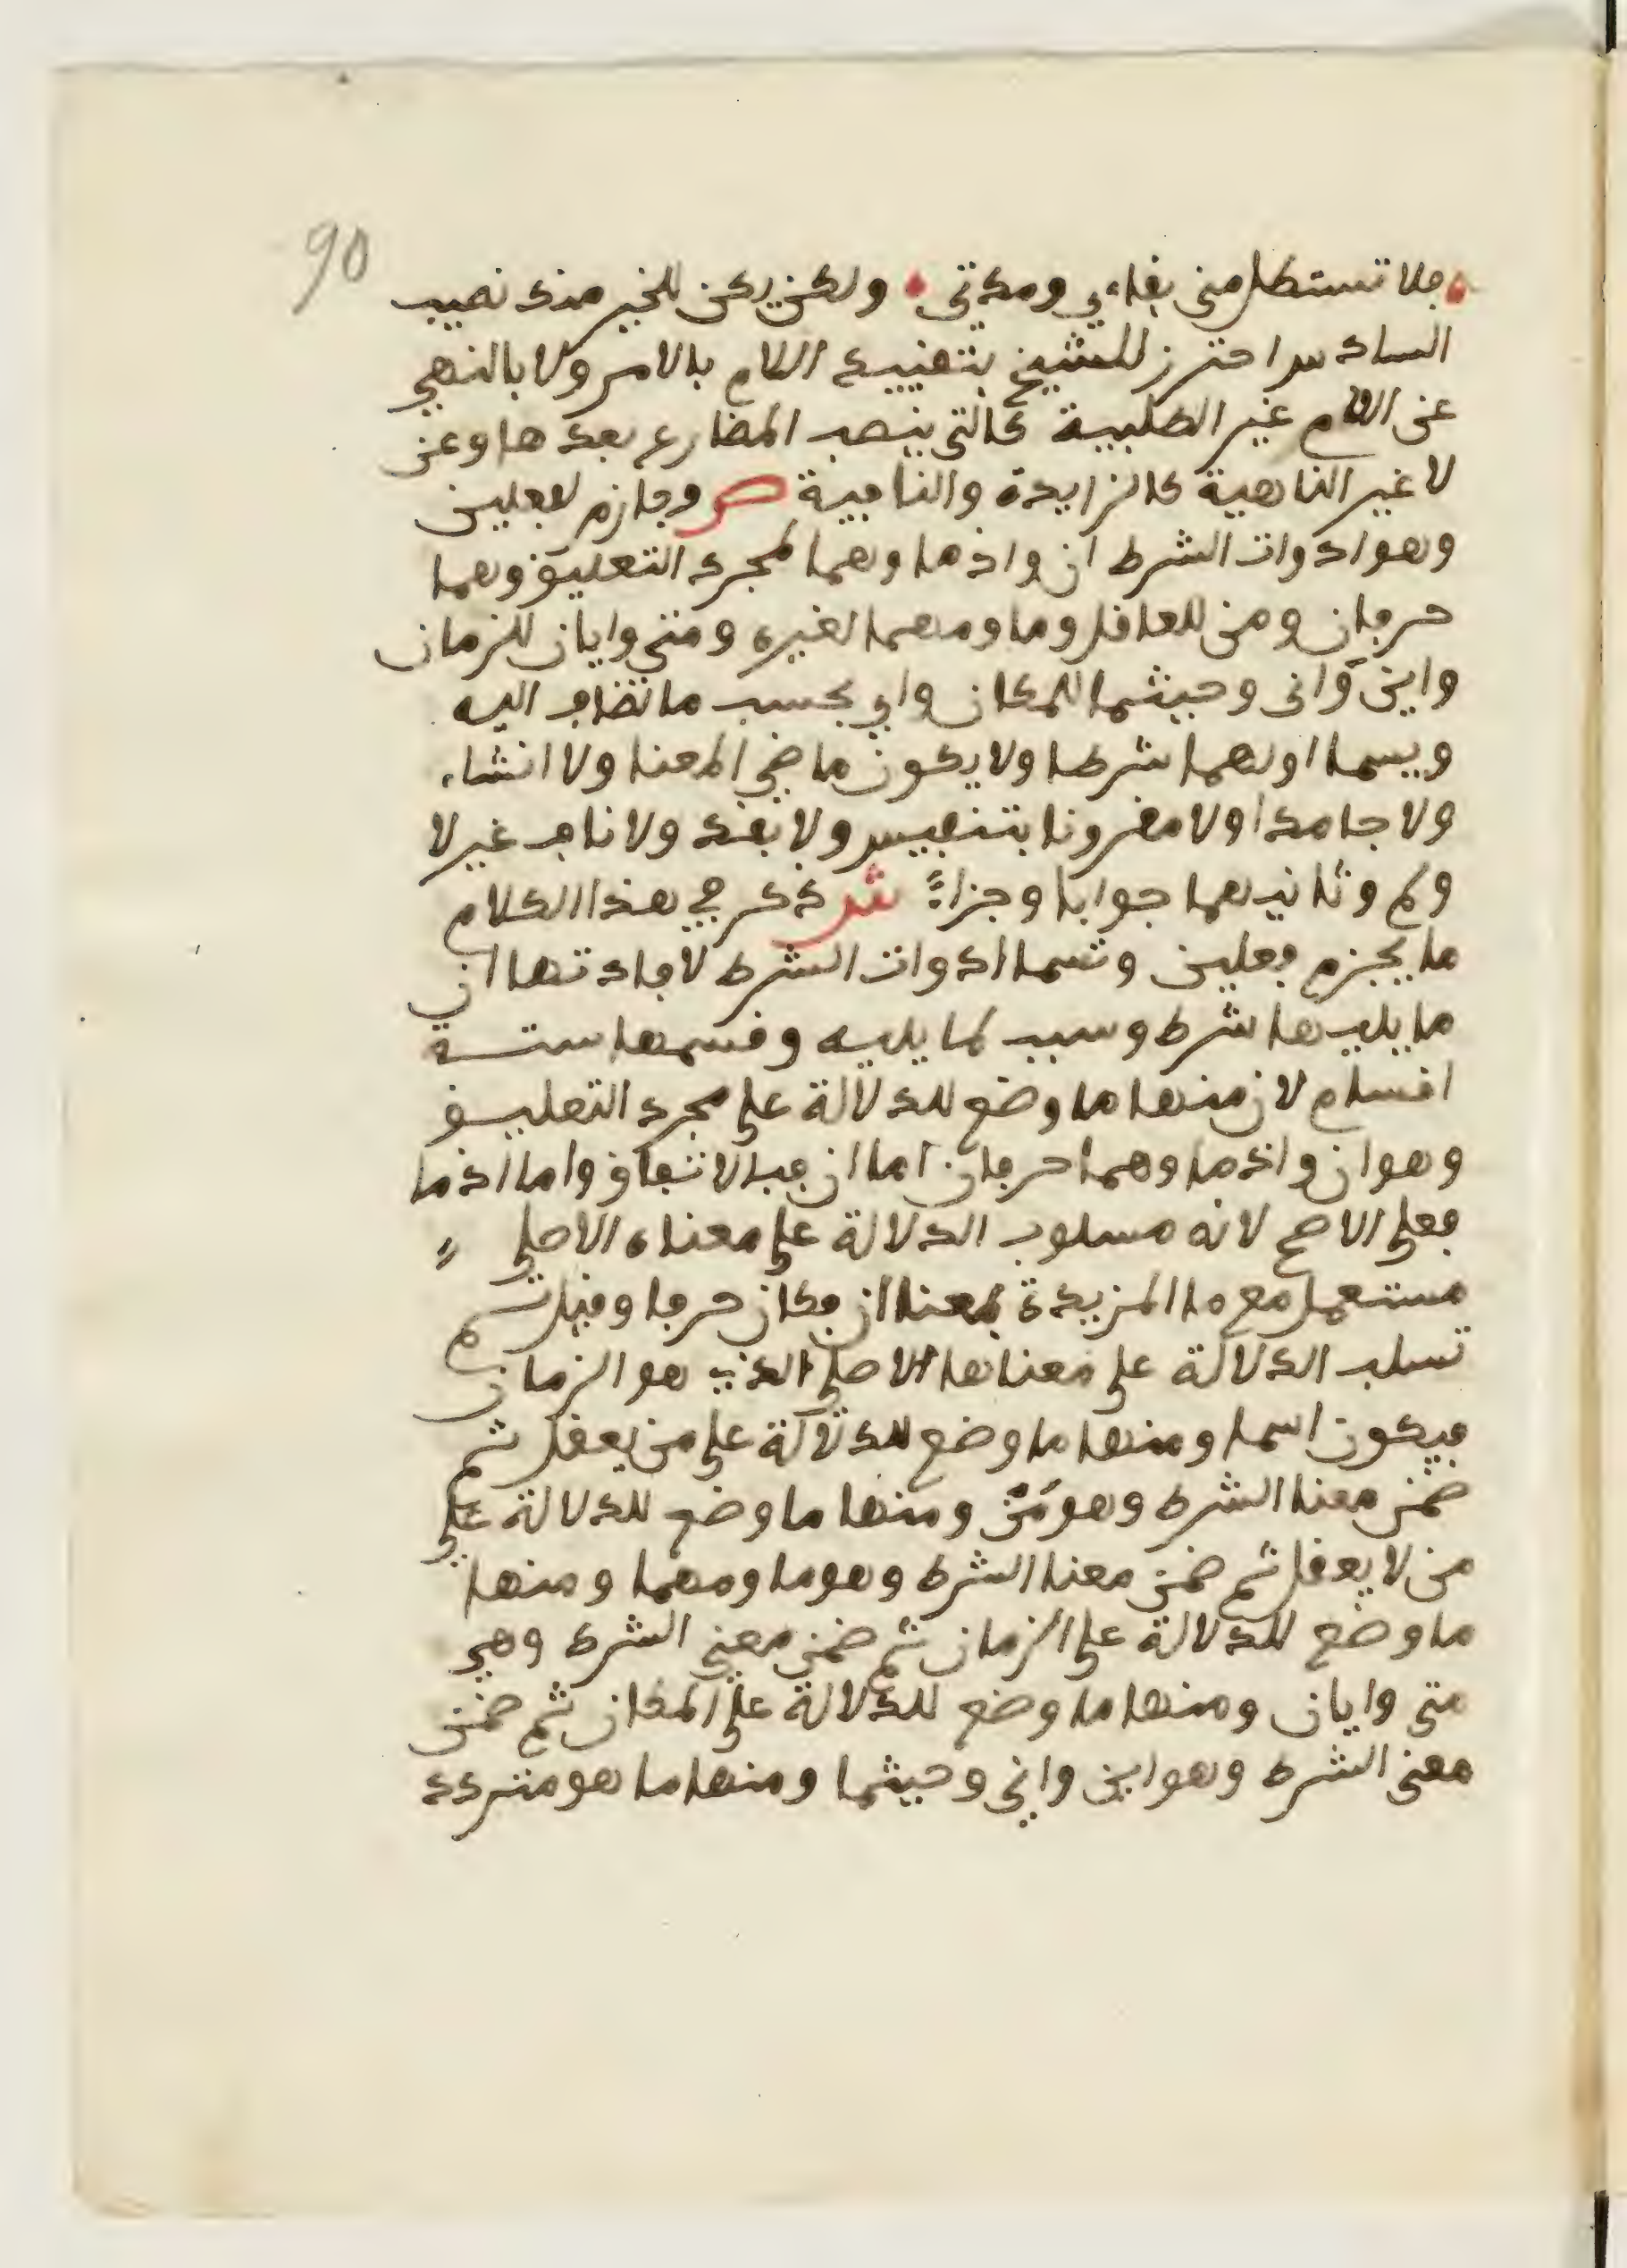 90
فلا تستطل مني بقاءي ومدتي ولكن يكن للخير منك نصيب
السادس احترز للشيخ بتقييد اللام بالامر ولا بالنهي
عن اللام غير الطلبية كالتي ينصب المضارع بعدها وعن
لا غير الناهية كالزايدة والنافية ص وجازم لفعلين
وهو ادوات الشرط ان واذما وهما لمجرد التعليق وهما
حرفان ومن للعاقل وما ومهما لغيره ومتى وايان للزمان
واين وانى وحيثما للمكان واي بحسب ما تضاف اليه
ويسما اولهما شرطا ولا يكون ماضي المعنا ولا انشاء
ولا جامدا ولا مقرونا بتنفيس ولا بقد ولا ناف غير لا
ولم وثانيهما جوابا وجزاءً ش ذكر في هذا الكلام
ما يجزم فعلين وتسما ادوات الشرط لافادتها ان
ما يليها شرط وسبب لما يليه وقسمها ستة
اقسام لان منها ما وضع للدلالة على مجرد التعليق
وهو ان واذما وهما حرفان اما ان فبالاتفاق واما اذما
فعلى الاصح لانه مسلوب الدلالة على معناه الاصلي
مستعمل مع ما المزيدة بمعنا ان فكان حرفا وقيل لم
تسلب الدلالة على معناها الاصلي الذي هو الزمان
فيكون اسما ومنها ما وضع للدلالة على من يعقل ثم
ضمن معنا الشرط وهو مَن ومنها ما وضع للدلالة على
من لا يعقل ثم ضمن معنا الشرط وهو ما ومهما ومنها
ما وضع للدلالة على الزمان ثم ضمن معنى الشرط وهي
متى وايان ومنها ما وضع للدلالة على المكان ثم ضمن
معنى الشرط وهو اين وانى وحيثما ومنها ما هو متردد